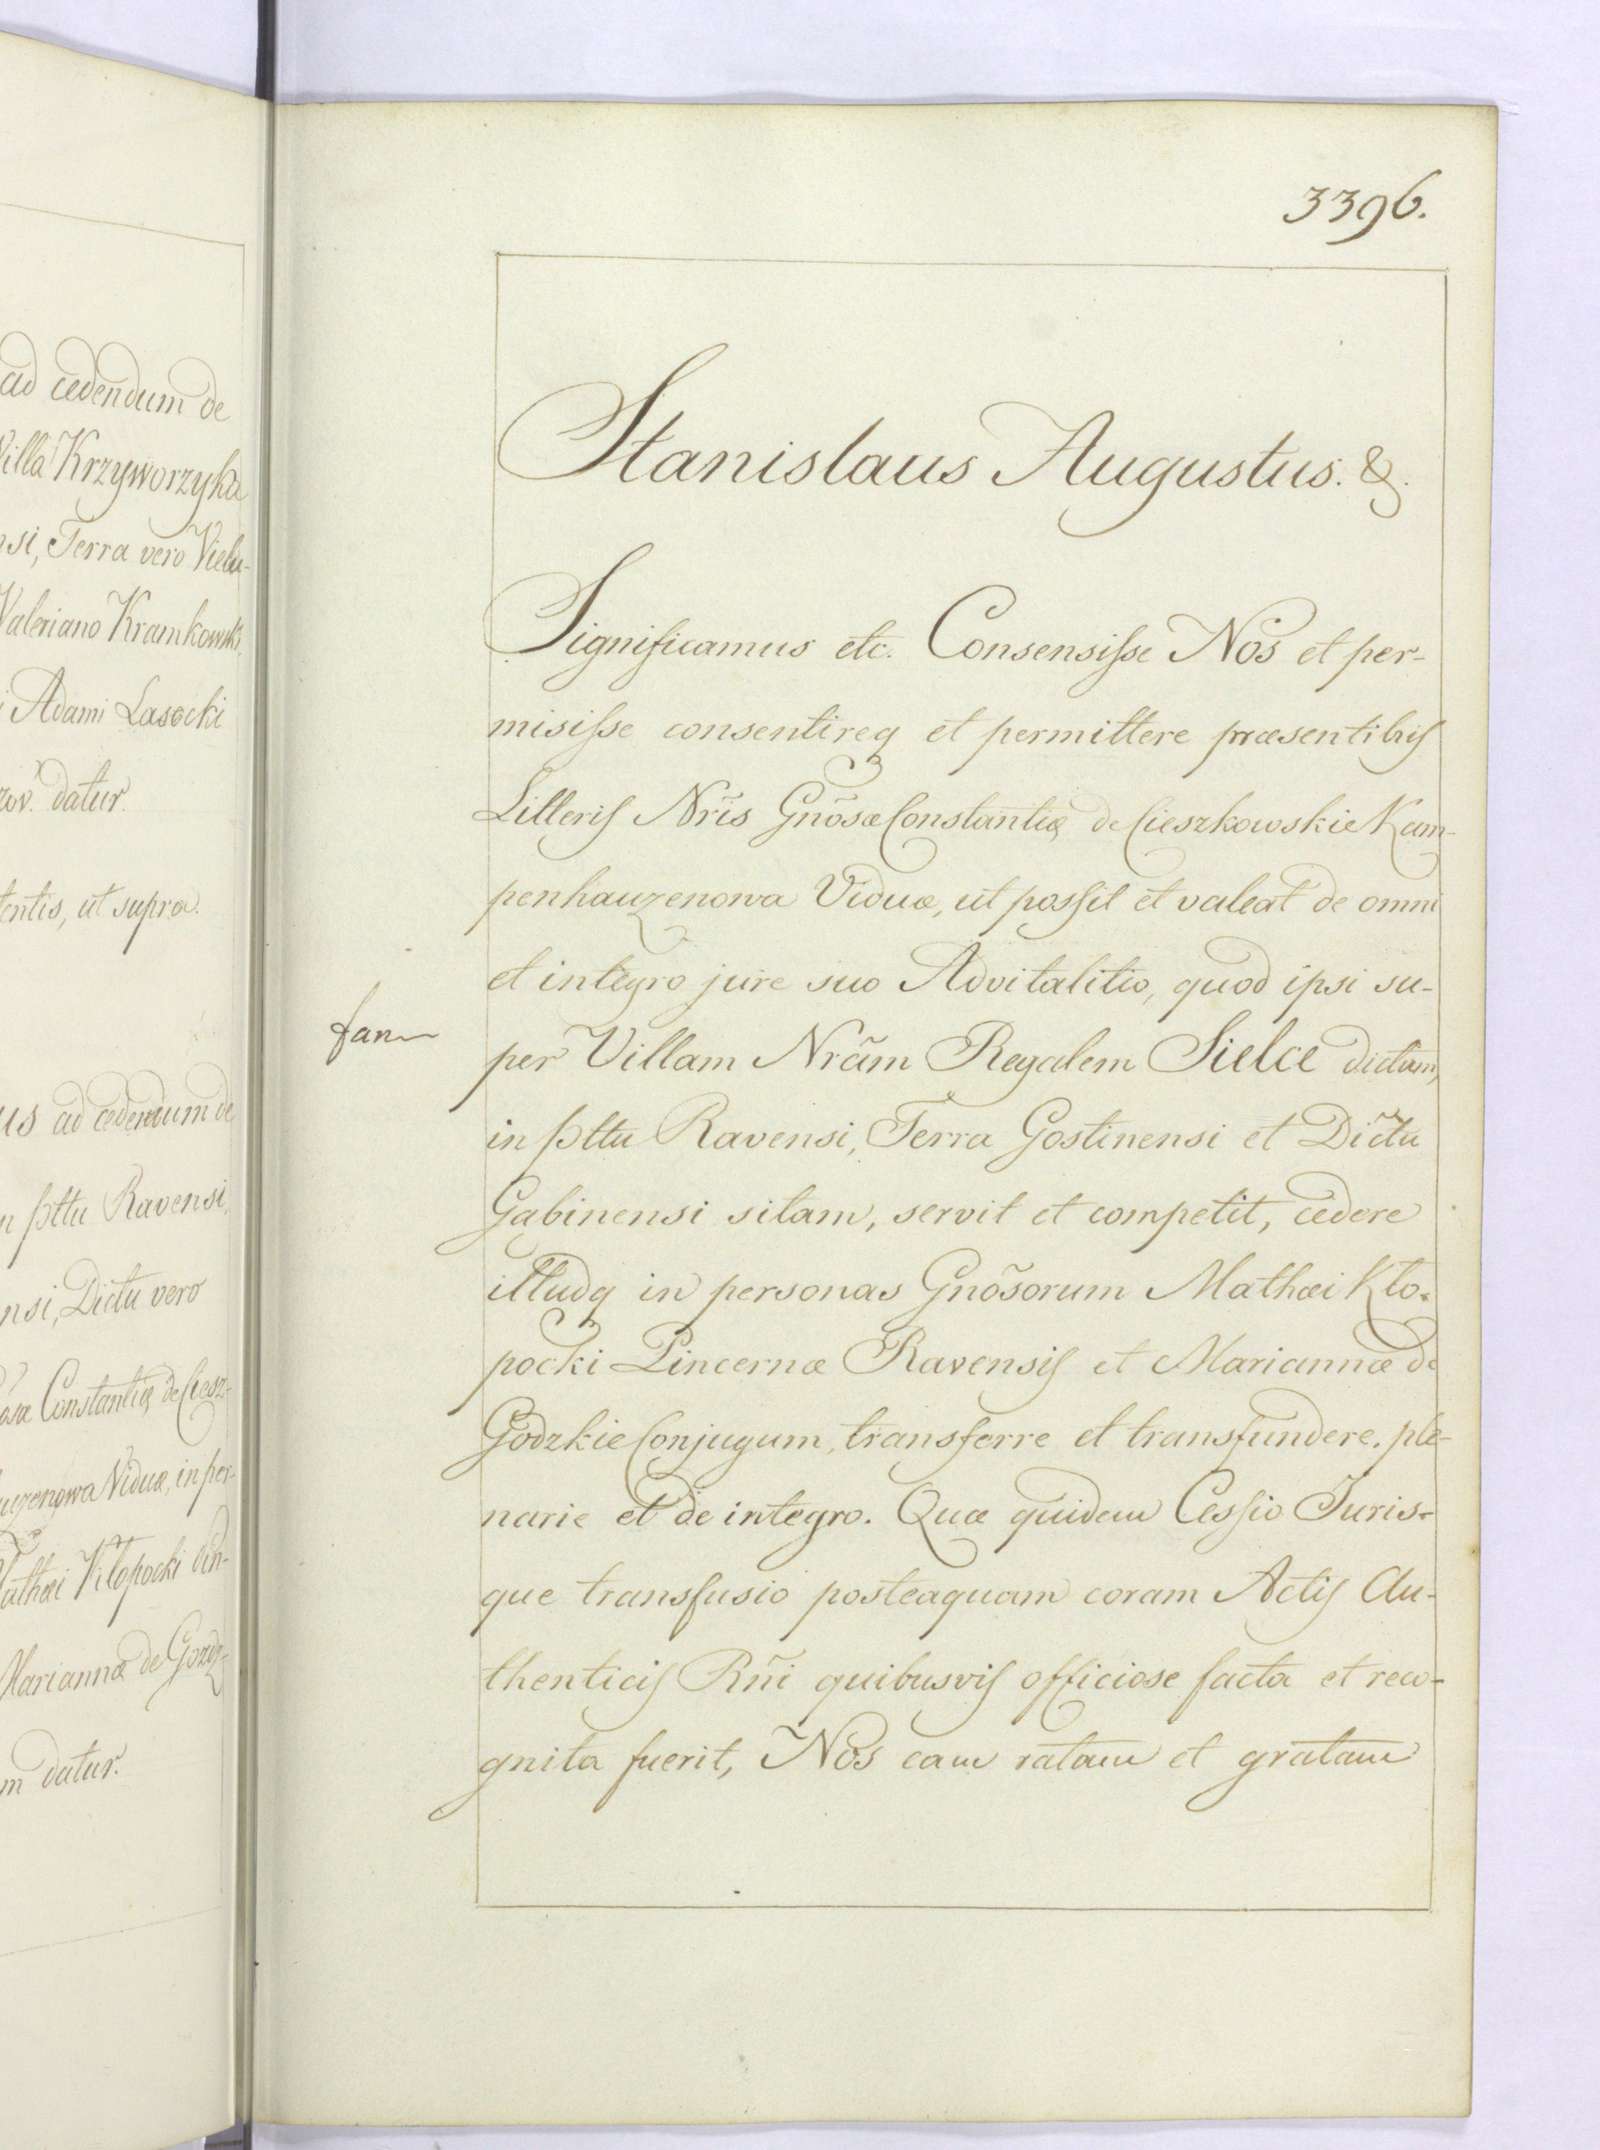 ad cedendum de
Villa Krzyworzyka
nsi, Terra vero Vielu-
Valeriano Kramkowski,
i Adami Lasocki
zov. datur.
tentis, ut supra.
us ad cedendum de
n pttu Ravensi,
nsi, Dictu vero
osæ Constantiæ de Ciesz-
uzenowa Viduæ, in per-
Mathæi Kłopocki Pin-
Mariannæ de Gozdz-
m datur.
3396.
Stanislaus Augustus. &.
Significamus etc. Consensisse Nos et per-
misisse consentireq et permittere præsentibus
Litteris Nr̃is Gnõsæ Constantiæ de Cieszkowskie Kam-
penhauzenowa Viduæ, ut possit et valeat de omni
et integro jure suo Advitalitio, quod ipsi su-
per Villam Nrãm Regalem Sielce dictam,
in pttu Ravensi, Terra Gostinensi et Dic̃tu
Gabinensi sitam, servit et competit, cedere
illudq in personas Gnõsorum Mathæi Kło-
pocki Pincernæ Ravensis et Mariannæ de
Godzkie Conjugum, transferre et transfundere, ple-
narie et de integro. Quæ quidem Cessio Juris-
que transfusio posteaquam coram Actis Au-
thenticis Rñi quibusvis officiose facta et reco-
gnita fuerit, Nos eam ratam et gratam